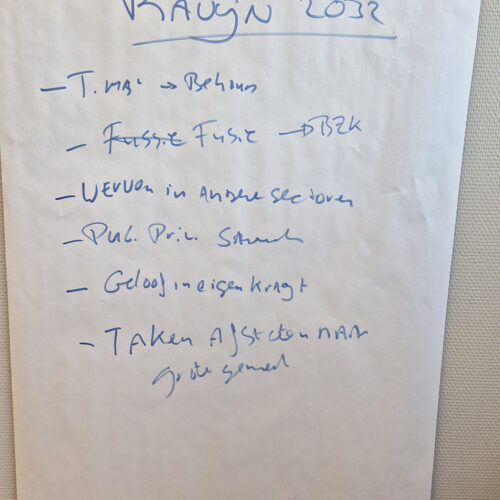 RAVIJN 2032
- T.MA' → Behoud
- Fussie Fusie → BZK
- Werven in andere sectoren
- Pub. Priv. Samenw
- Geloof in eigen kragt
- Taken afstoten naar
grote gemeent